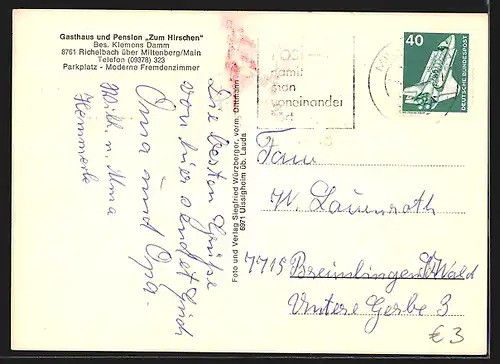 Gasthaus und Pension „Zum Hirschen"
Bes. Klemens Damm
8761 Richelbach über Miltenberg/Main
Telefon (09378) 323
Parkplatz - Moderne Fremdenzimmer
Die besten Grüße
von hier sendet Euch
Oma und Opa.
Willi u. Anna
Foto und Verlag Siegfried Würzberger, vorm. Dittmann
6971 Uissigheim üb. Lauda
Post –
damit
man
voneinander
hört
40
DEUTSCHE BUNDESPOST
Fam.
W. Lauenroth
7715 Bräunlingen/Schwald
Untere Gerbe 3
€ 3